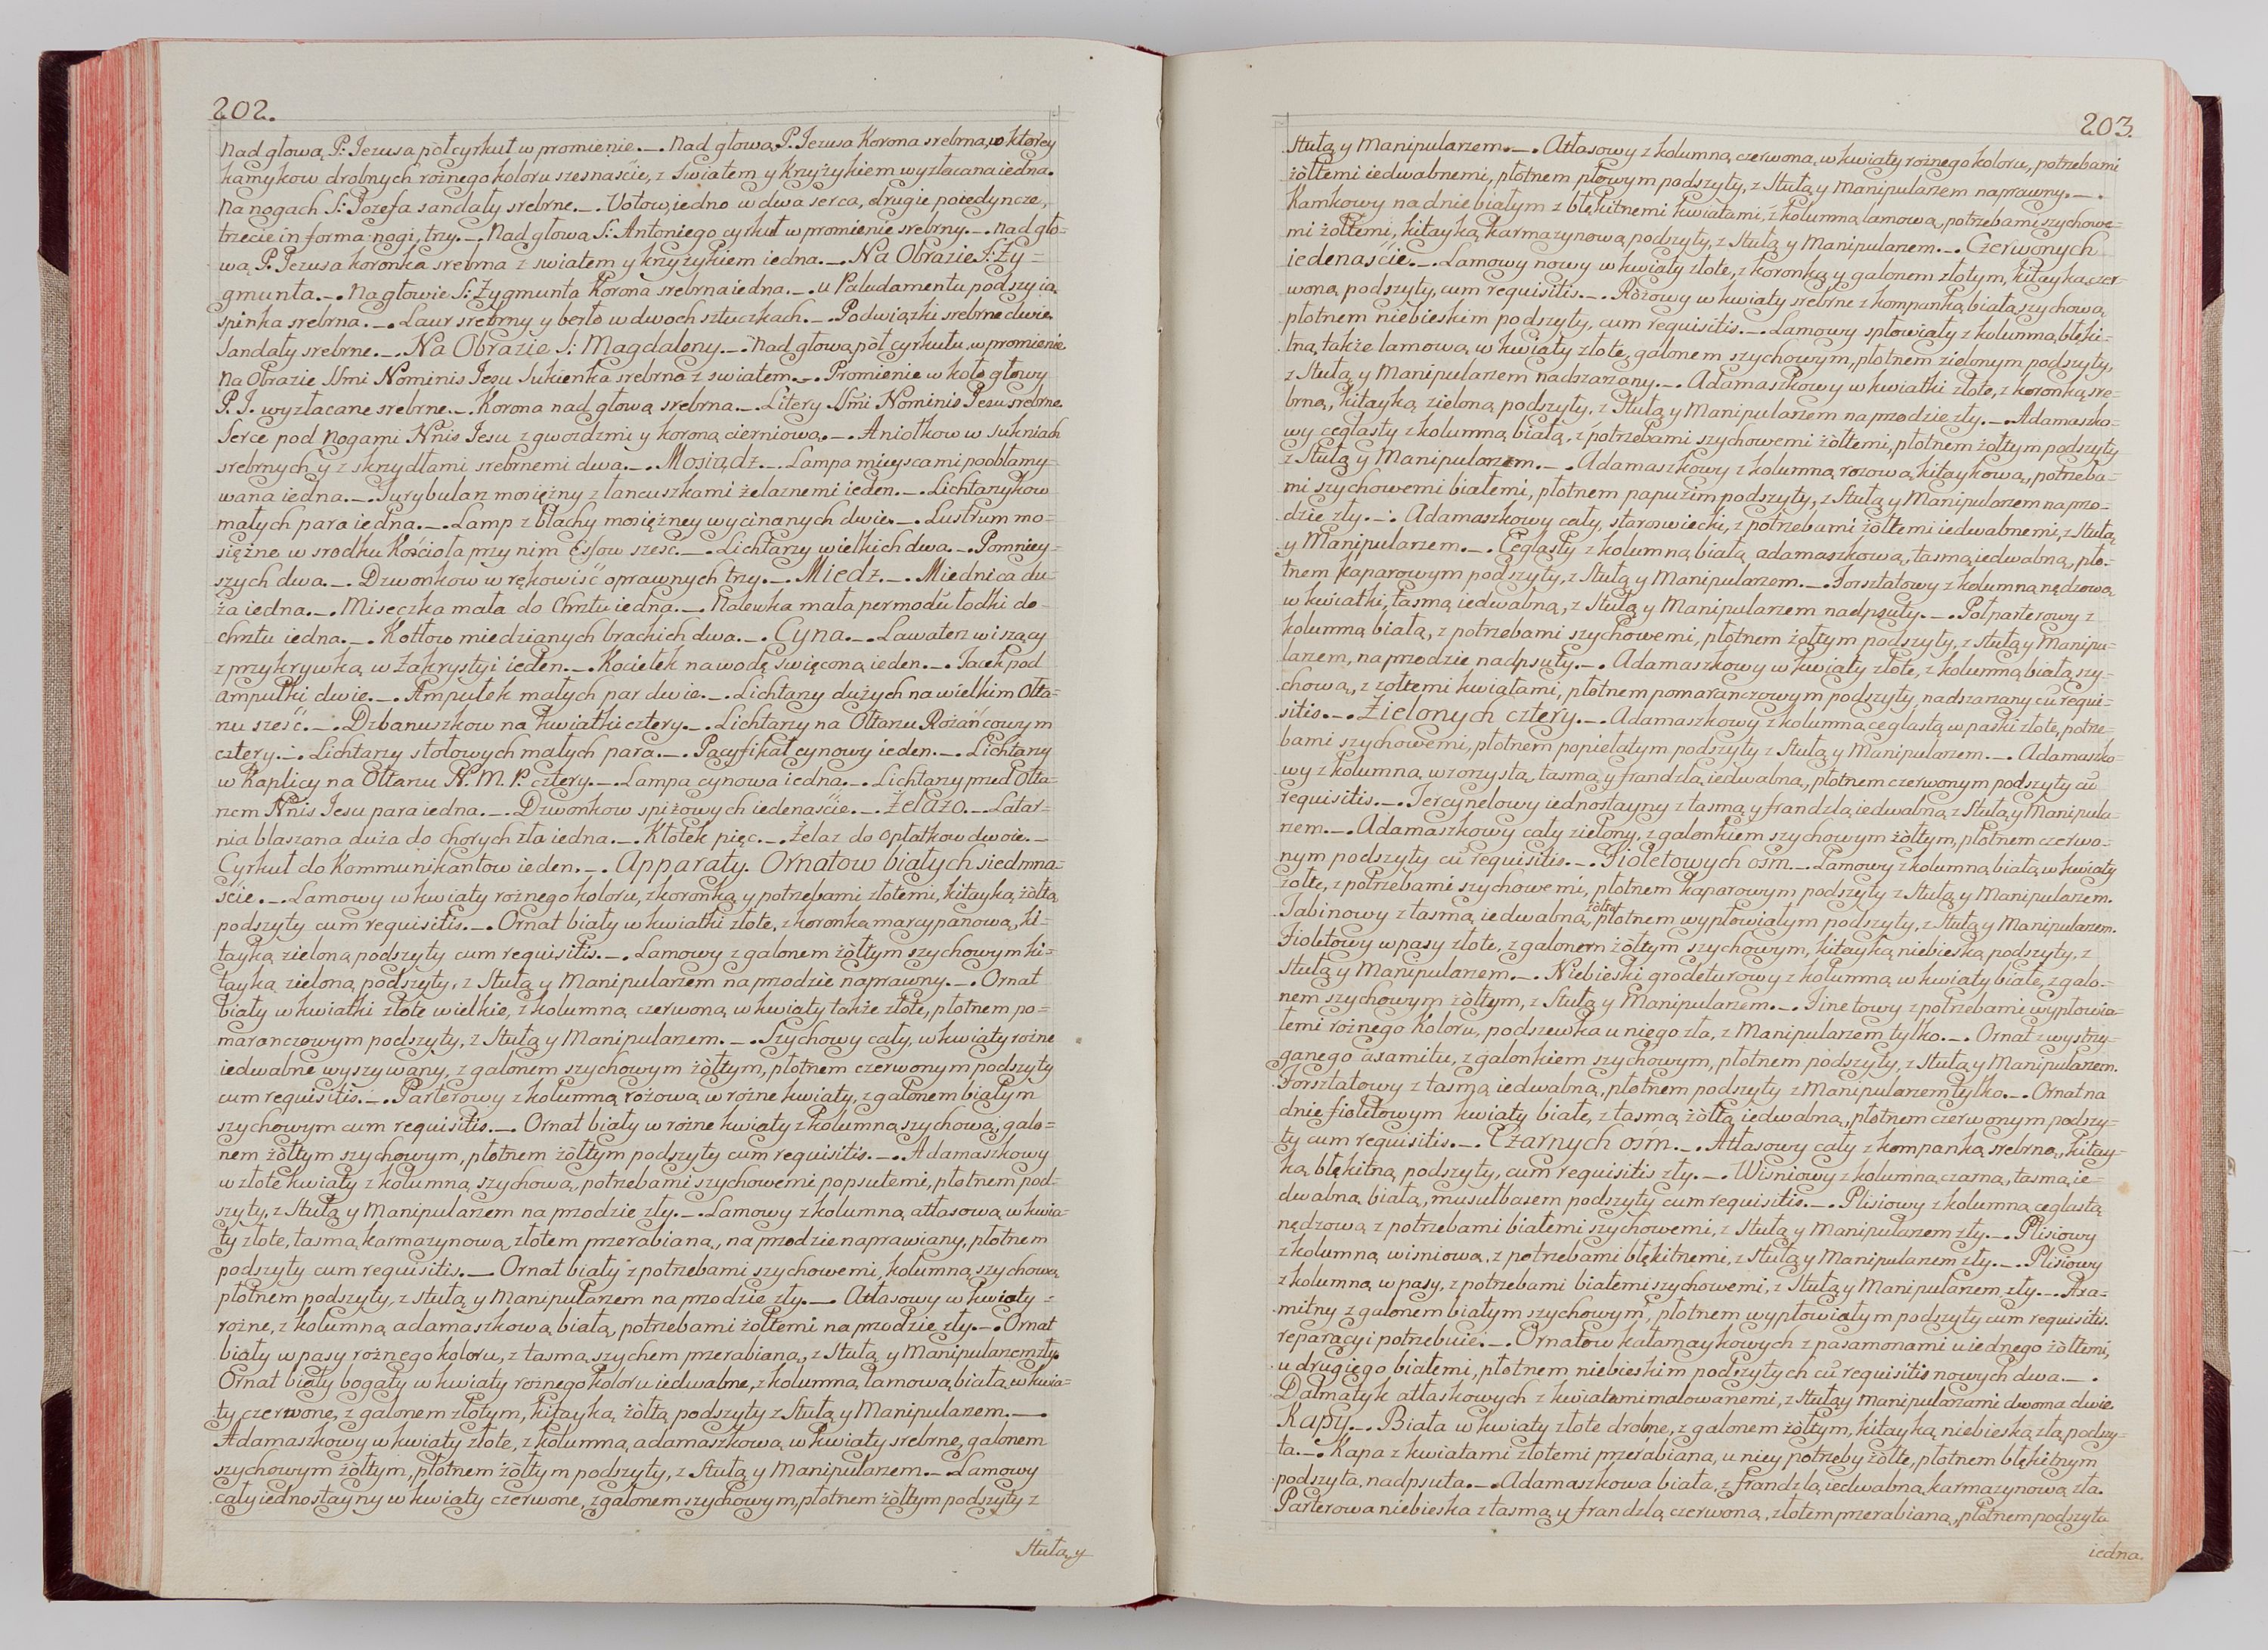 202.
Nad głową P: Jezusa połcyrkuł w promienie._. Nad głową P. Jezusa Korona srebrna, w ktorey
kamykow drobnych rożnego koloru szesnaście, z Swiatem y Krzyżykiem wyzłacana iedna.
Na nogach S: Jozefa sandały srebrne._. Votow, iedno w dwa serca, drugie poiedyncze,
trzecie in forma nogi, trzy._. Nad głową S: Antoniego cyrkuł w promienie srebrny._. Nad gło=
wą P. Jezusa koronka srebrna z swiatem y krzyżykiem iedna._. Na Obrazie S: Zy=
gmunta._. Na głowie S: Zygmunta Korona srebrna iedna._. u Paludamentu pod szyią
spinka srebrna._. Laur srebrny y berło w dwoch sztuczkach._. Podwiązki srebrne dwie.
Sandały srebrne._. Na Obrazie S: Magdaleny._. Nad głową poł cyrkułu, w promienie
Na Obrazie SSmi Nominis Jesu Sukienka srebrna z swiatem._. Promienie w koło głowy
P. J. wyzłacane srebrne._. Korona nad głową srebrna._. Litery SSmi Nominis Jesu srebrne.
Serce pod Nogami Nnis Jesu z gwozdzmi y koroną cierniową._. Aniołkow w Sukniach
srebrnych y z skrzydłami srebrnemi dwa._. Mosiądz._. Lampa mieyscami poobłamy=
wana iedna._. Turybularz mosiężny z łancuszkami żelaznemi ieden._. Lichtarzykow
małych para iedna._. Lamp z blachy mosiężney wycinanych dwie._. Lustrum mo=
siężne w srodku Kościoła przy nim Essow szesc._. Lichtarzy wielkich dwa._. Pomniey=
szych dwa._. Dzwonkow w rękowiść oprawnych trzy._. Miedź._. Miednica du=
ża iedna._. Miseczka mała do Chrztu iedna._. Nalewka mała per modū łodki do
chrztu iedna._. Kotłow miedzianych brackich dwa._. Cyna._. Lawaterz wiszący
z przykrywką w Zakrystyi ieden._. Kociełek na wodę swięconą ieden._. Tacek pod
ampułki dwie._. Ampułek małych par dwie._. Lichtarzy dużych na wielkim Ołta=
rzu sześć._. Dzbanuszkow na kwiatki cztery._. Lichtarzy na Ołtarzu Rożańcowym
cztery._. Lichtarzy stołowych małych para._. Pacyfikał cynowy ieden._. Lichtarzy
w Kaplicy na Ołtarzu N. M. P. cztery._. Lampa cynowa iedna._. Lichtarzy przed Ołta=
rzem Nnis Jesu para iedna._. Dzwonkow spiżowych iedenaście._. Żelazo._. Latar=
nia blaszana duża do chorych zła iedna._. Kłotek pięc._. Żelaz do Opłatkow dwoie._
Cyrkuł do Kommunikantow ieden._. Apparaty. Ornatow białych siedmna=
ście._. Lamowy w kwiaty rożnego koloru, z koronką y potrzebami złotemi, kitayką żołtą
podszyty cum requisitis._. Ornat biały w kwiatki złote, z koronką marcypanową, ki=
tayką zieloną podszyty cum requisitis._. Lamowy z galonem żółtym szychowym ki=
tayką zieloną podszyty, z Stułą y Manipularzem na przodzie naprawny._. Ornat
biały w kwiatki złote wielkie, z kolumną czerwoną w kwiaty także złote, płotnem po=
maranczowym podszyty, z Stułą y Manipularzem._. Szychowy cały, w kwiaty rożne
iedwabne wyszywany, z galonem szychowym żółtym, płotnem czerwonym podszyty
cum requisitis._. Parterowy z kolumną rożową w rożne kwiaty, z galonem białym
szychowym cum requisitis._. Ornat biały w rożne kwiaty z kolumną szychową, galo=
nem żółtym szychowym, płotnem żółtym podszyty cum requisitis._. Adamaszkowy
w złote kwiaty z kolumną szychową, potrzebami szychowemi popsutemi, płotnem pod=
szyty, z Stułą y Manipularzem na przodzie zły._. Lamowy z kolumną atłasową w kwia=
ty złote, tasmą karmazynową złotem przerabianą, na przodzie naprawiany, płotnem
podszyty cum requisitis.__ Ornat biały z potrzebami szychowemi, kolumną szychową,
płotnem podszyty, z stułą y Manipularzem na przodzie zły.__ Atłasowy w kwiaty=
rożne, z kolumną adamaszkową białą, potrzebami żołtemi na przodzie zły._. Ornat
biały w pasy rożnego koloru, z tasmą szychem przerabianą, z Stułą y Manipularzem zły.
Ornat biały bogaty w kwiaty rożnego koloru iedwabne, z kolumną lamową białą w kwia=
ty czerwone, z galonem złotym, kitayką żółtą podszyty z Stułą y Manipularzem.__
Adamaszkowy w kwiaty złote, z kolumną adamaszkową w kwiaty srebrne, galonem
szychowym żółtym, płotnem żółtym podszyty, z Stułą y Manipularzem._. Lamowy
cały iednostayny w kwiaty czerwone, z galonem szychowym, płotnem żółtym podszyty z
Stułą y
203.
Stułą y Manipularzem._. Atłasowy z kolumną czerwoną w kwiaty rożnego koloru, potrzebami
żółtemi iedwabnemi, płotnem płowym podszyty, z Stułą y Manipularzem naprawny._.
Kamkowy na dnie białym z błękitnemi kwiatami, z kolumną lamową, potrzebami szychowe=
mi żółtemi, kitayką karmazynową podszyty, z Stułą y Manipularzem._. Czerwonych
iedenaście._. Lamowy nowy w kwiaty złote, z koronką y galonem złotym, kitayką czer=
woną podszyty, cum requisitis._. Rożowy w kwiaty srebrne z kompanką białą szychową,
płotnem niebieskim podszyty, cum requisitis._. Lamowy spłowiały z kolumną błęki=
tną, także lamową w kwiaty złote, galonem szychowym, płotnem zielonym podszyty,
z Stułą y Manipularzem nadszarzany._. Adamaszkowy w kwiatki złote, z koronką sre=
brną, kitayką zieloną podszyty, z Stułą y Manipularzem na przodzie zły._. Adamaszko=
wy ceglasty z kolumną białą, z potrzebami szychowemi żółtemi, płotnem żołtym podszyty
z Stułą y Manipularzem._. Adamaszkowy z kolumną rozową kitaykową, potrzeba=
mi szychowemi białemi, płotnem papużim podszyty, z Stułą y Manipularzem na przo=
dzie zły._. Adamaszkowy cały, staroswiecki, z potrzebami żółtemi iedwabnemi, z Stułą
y Manipularzem._. Ceglasty z kolumną białą adamaszkową, tasmą iedwabną, pło=
tnem kaparowym podszyty, z Stułą y Manipularzem._. Forsztatowy z kolumną nędzową
w kwiatki, tasmą iedwabną, z Stułą y Manipularzem nadpsuty._. Połparterowy z
kolumną białą, z potrzebami szychowemi, płotnem żołtym podszyty, z stułą y Manipu=
larzem, na przodzie nadpsuty._. Adamaszkowy w kwiaty złote, z kolumną białą szy=
chową, z zołtemi kwiatami, płotnem pomaranczowym podszyty, nadszarzany cū requi=
sitis._. Zielonych cztery._. Adamaszkowy z kolumną ceglastą w paski złote, potrze=
bami szychowemi, płotnem popielatym podszyty z Stułą y Manipularzem._. Adamaszko=
wy z kolumną wzorzystą, tasmą y frandzlą iedwabną, płotnem czerwonym podszyty cū
requisitis._. Tercynelowy iednostayny z tasmą y frandzlą iedwabną z Stułą y Manipula=
rzem._. Adamaszkowy cały zielony, z galonkiem szychowym żółtym, płotnem czerwo=
nym podszyty cū requisitis._. Fioletowych ośm._. Lamowy z kolumną białą w kwiaty
żołte, z potrzebami szychowemi, płotnem kaparowym podszyty z Stułą y Manipularzem.
Tabinowy z tasmą iedwabną żółtą, płotnem wypłowiałym podszyty, z Stułą y Manipularzem.
Fioletowy w pasy złote, z galonem żółtym szychowym, kitayką niebieską podszyty, z
Stułą y Manipularzem._. Niebieski grodeturowy z kolumną w kwiaty białe, z galo=
nem szychowym żółtym, z Stułą y Manipularzem._. Finetowy z potrzebami wypłowia=
łemi rożnego Koloru, podszewka u niego zła, z Manipularzem tylko._. Ornat z wystrzy=
ganego axamitu, z galonkiem szychowym, płotnem podszyty, z Stułą y Manipularzem.
Forsztatowy z tasmą iedwabną, płotnem podszyty z Manipularzem tylko._. Ornat na
dnie fioletowym kwiaty białe, z tasmą żółtą iedwabną, płotnem czerwonym podszy=
ty cum requisitis._. Czarnych ośm._. Atłasowy cały z kompanką srebrną, kitay=
ką błękitną podszyty, cum requisitis zły._. Wisniowy z kolumną czarną, tasmą ie=
dwabną białą, musułbasem podszyty cum requisitis._. Plisiowy z kolumną ceglastą
nędzową z potrzebami białemi szychowemi, z Stułą y Manipularzem zły._. Plisiowy
z kolumną wisniową, z potrzebami błękitnemi, z Stułą y Manipularzem zły._. Plisiowy
z kolumną w pasy, z potrzebami białemi szychowemi, z Stułą y Manipularzem zły._. Axa=
mitny z galonem białym szychowym, płotnem wypłowiałym podszyty cum requisitis.
reparacyi potrzebuie._. Ornatow kałamaykowych z pasamonami u iednego żółtemi,
u drugiego białemi, płotnem niebieskim podszytych cū requisitis nowych dwa._.
Dalmatyk atłaskowych z kwiatami malowanemi, z Stułą y Manipularzami dwoma dwie.
Kapy._. Biała w kwiaty złote drobne, z galonem żółtym, kitayką niebieską złą podszy=
ta._. Kapa z kwiatami złotemi przerabiana, u niey potrzeby żółte, płotnem błękitnym
podszyta, nadpsuta._. Adamaszkowa biała, z frandzlą iedwabną karmazynową zła.
Parterowa niebieska z tasmą y frandzlą czerwoną, złotem przerabianą, płotnem podszyta
iedna.